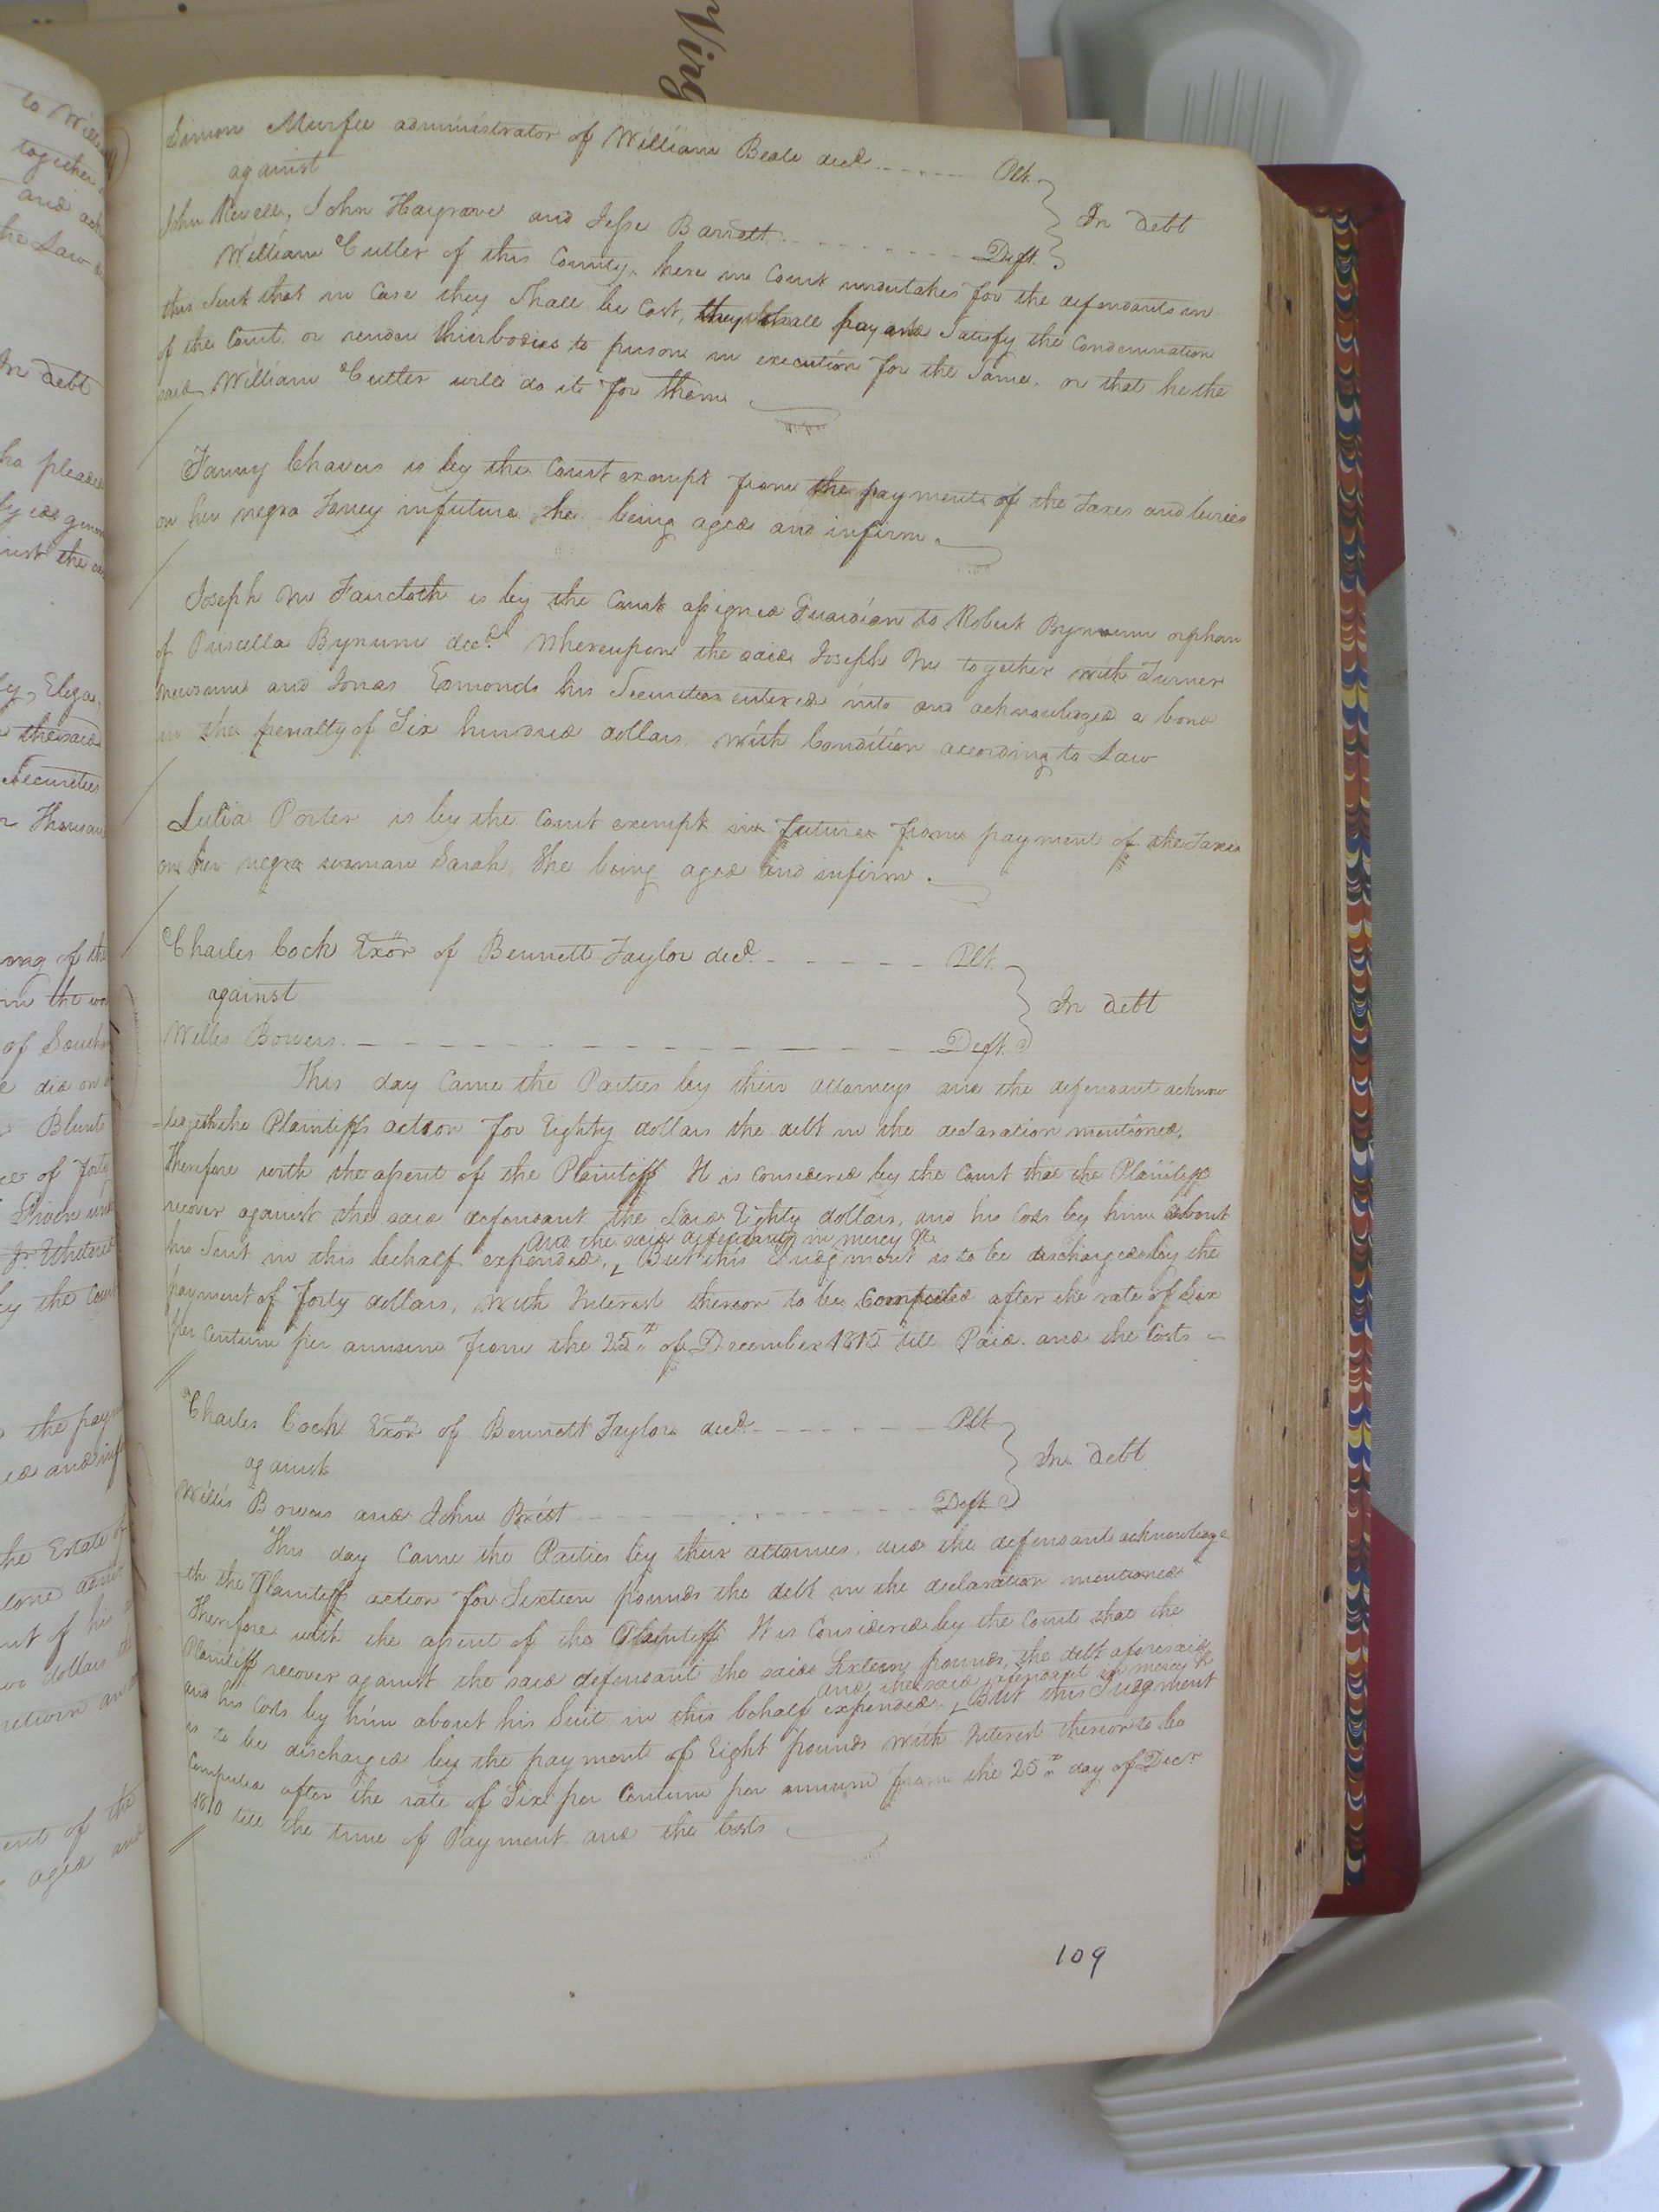 Virg
Simon Murfee administrator of William Beale decd. Plt.
against
In debt
John Revell, John Hargrave and Jesse Barrett Deft.
William Cutler of this County, here in Court undertakes for the defendants in
this Suit that in Case they Shall be Cast, they Shall pay and Satisfy the Condemnation
of the Court. or render thier bodies to prison in execution for the Same. or that he the
said William Cutler will do it for them
Fanny Chavers is by the Court exempt from the payment of the Taxes and levies
on her negro Fancy in future she being aged and infirm.
Joseph M Faircloth is by the Court assigned Guardian to Robert Bynum orphan
of Priscilla Bynum decd. Whereupon the said Joseph M together with Turner
Newsum and Jonas Edmonds his Securities entered into and acknowledged a bond
in the penalty of Six hundred dollars. With Condition according to Law
Lulia Porter is by the Court exempt in future from payment of the Taxes
on her negro woman Sarah, She being aged and infirm.
Charles Cock Exor of Bennett Taylor decd. Plt.
against
In debt
Willis Bowers. Deft.
This day Came the Parties by their attorneys and the defendant acknow
=ledgeth the Plaintiffs action for Eighty dollars the debt in the declaration mentioned,
Therefore with the assent of the Plaintiff It is Considered by the Court that the Plaintiff
recover against the said defendant the Said Eighty dollars, and his Costs by him about
and the said defendant in mercy &c
his Suit in this behalf expended, But this Judgment is to be discharged by the
payment of Forty dollars, With Interest thereon to be Computed after the rate of Six
per Centum per annum from the 25th of December 1815 till Paid. and the Costs
Charles Cock Exor of Bennett Taylor decd. Plt
against
In debt
Willis Bowers and John Brist Deft
This day Came the Parties by their attornies, and the defendant acknowledge
=th the Plaintiff action for Sixteen pounds the debt in the declaration mentioned
Therefore with the assent of the Plaintiff It is Considered by the Court that the
Plaintiff recover against the said defendant the said Sixteen pounds, the debt aforesaid
and the said defendant in mercy &c
and his Costs by him about his Suit in this behalf expended. But this Judgment
is to be discharged by the payment of Eight pounds with Interest thereon to be
Computed after the rate of Six per Centum per annum from the 25th day of Decr
1810 till the time of Payment. and the Costs
109